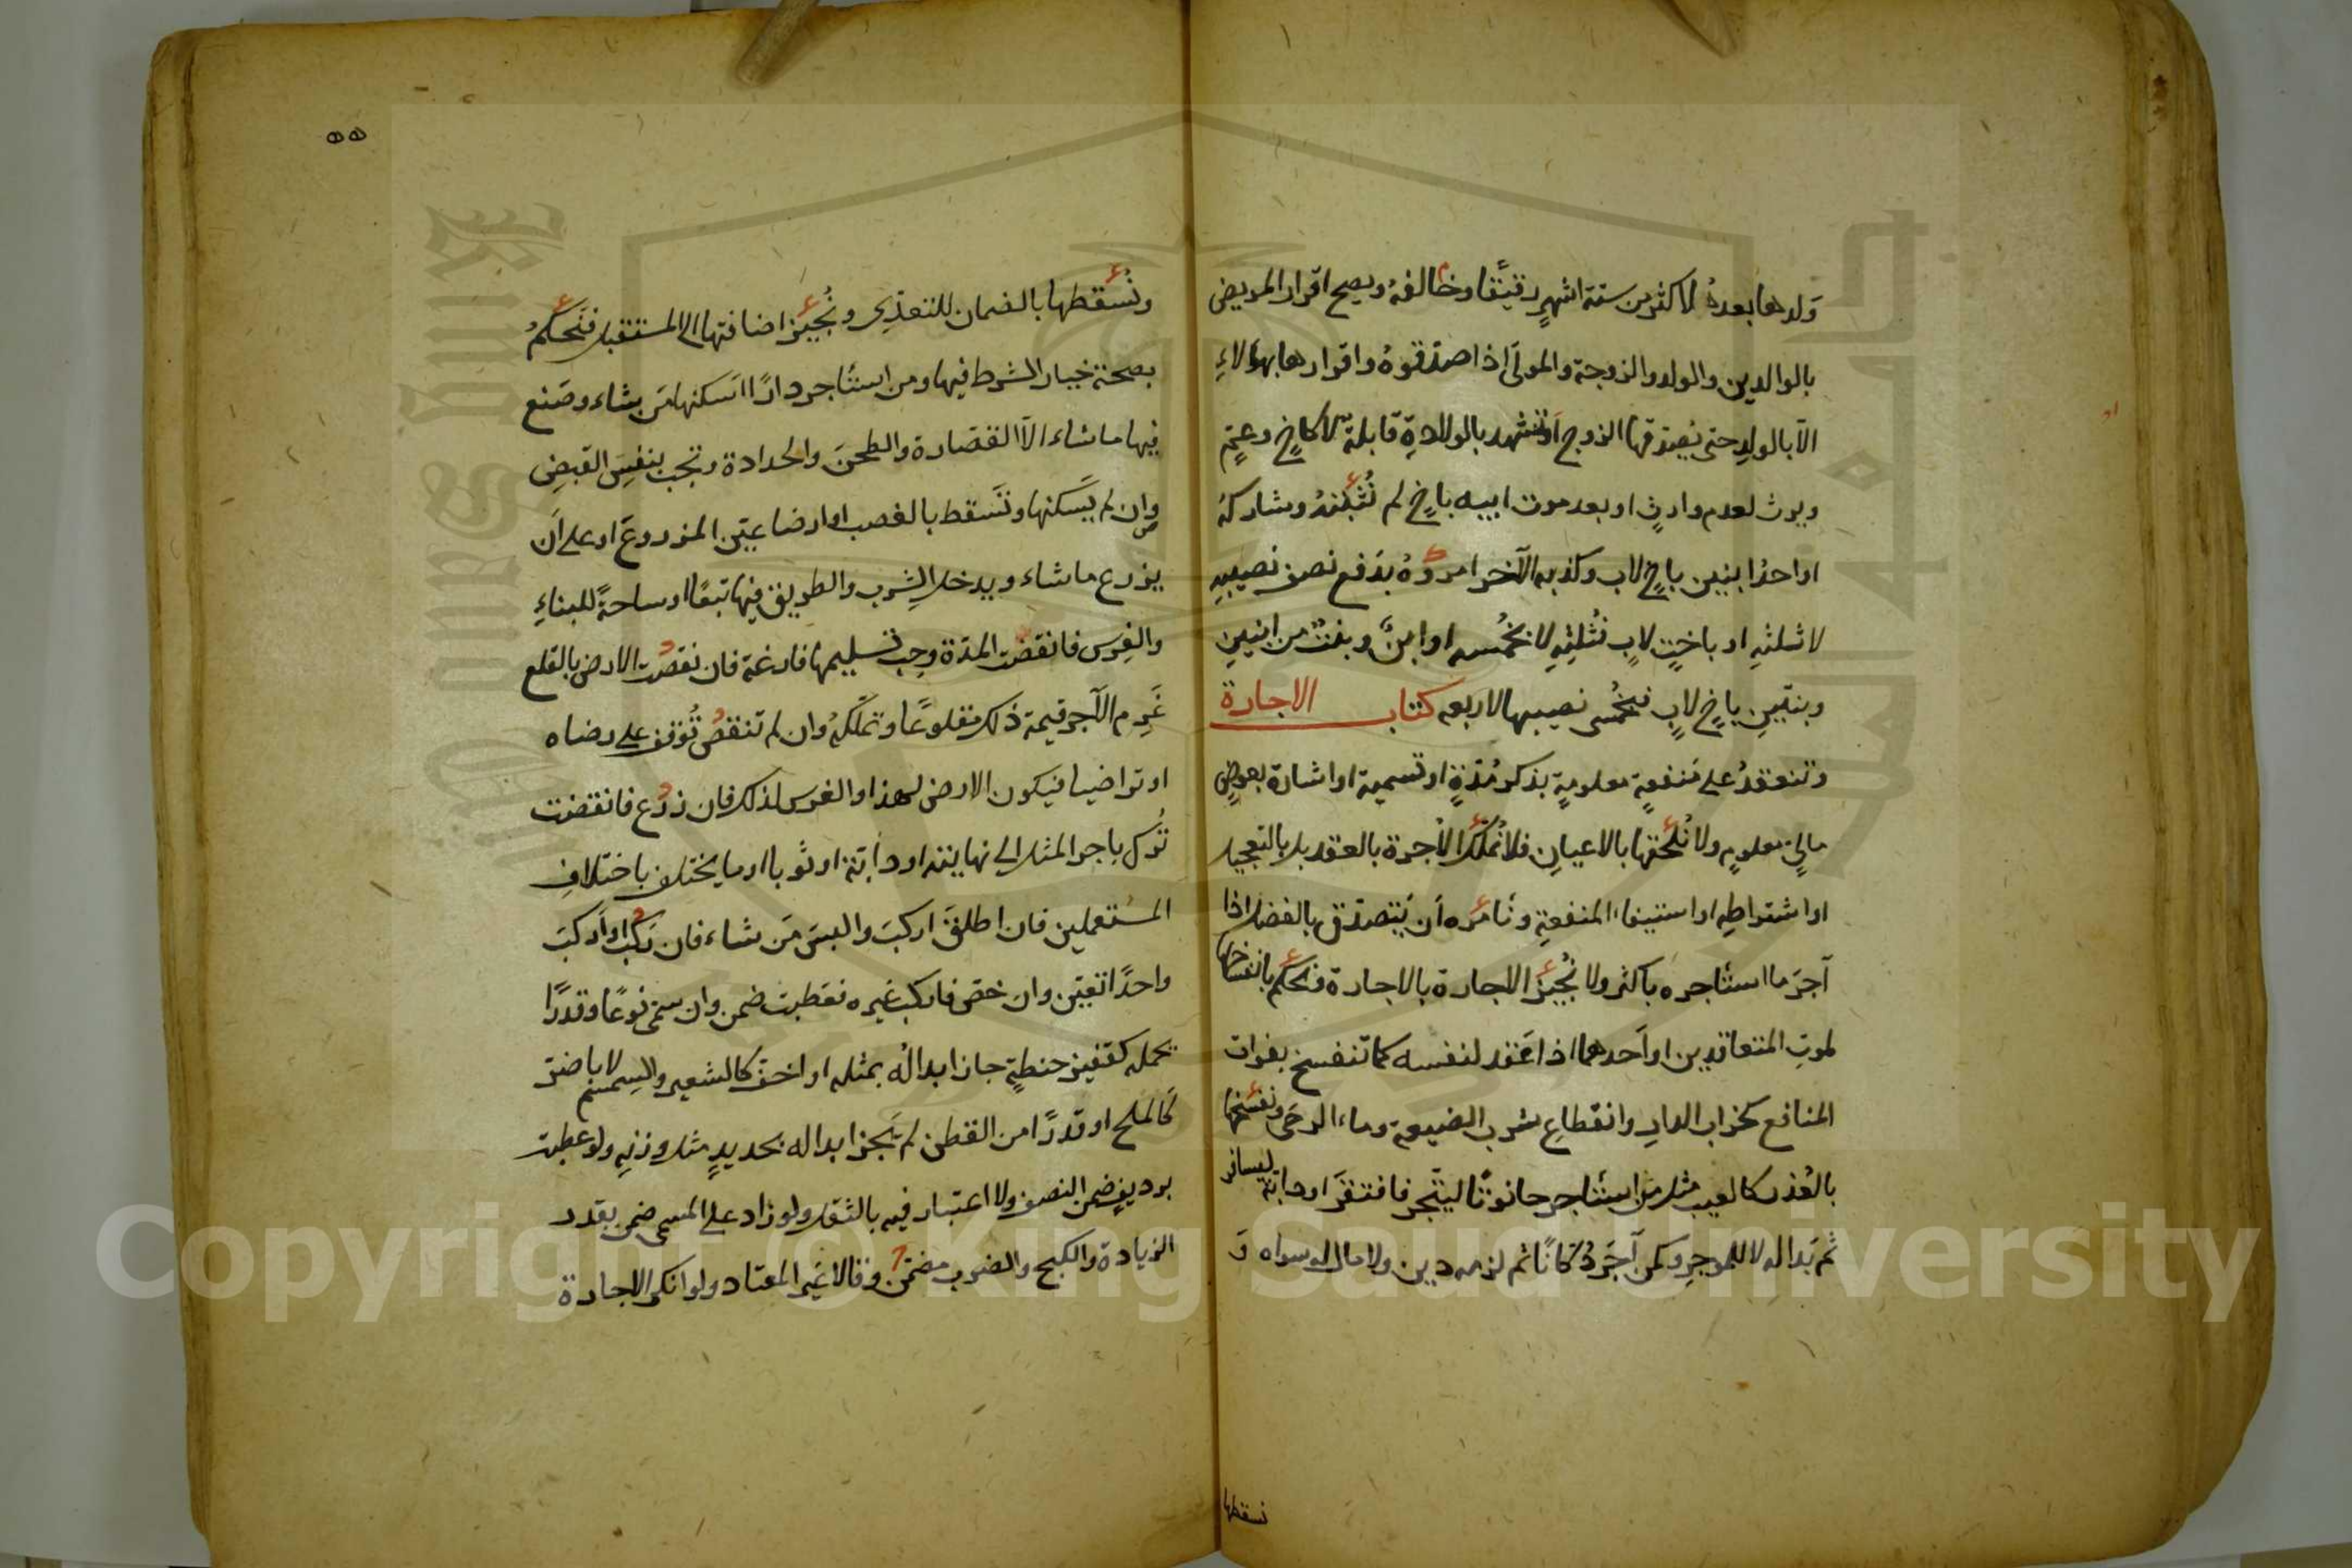 وَلدها بعده لاكثر من ستة اشهرٍ رقيقًا وخالفهُ ويصح اقرار المريض
بالوالدين والولد والزوجة والمولَى اذا صدّقوهُ واقرارها بهؤلاءِ
الّا بالولدِ حتى يصدّقها الزوج او تشهد بالولادةِ قابلةٌ لا كاخٍ وعمٍّ
ويرث لعدم وارثٍ او بعد موت ابيه باخٍ لم نُثْبِتْهُ وشاركهُ
او احدُ ابنين باخٍ لاب وكذبه الآخر امروهُ بدَفع نصف نصيبهِ
لا ثلثهِ او باختٍ لابٍ فثُلثِهِ لا خُمسه او ابنٌ وبنتٌ من ابنينِ
وبنتينِ باخٍ لابٍ فخُمسى نصيبهما لا ربعه كتاب الاجارة
وتنعقدُ على مَنفعةٍ معلومةٍ بذكر مُدّةٍ او تسمية او اشارة بعوضٍ
مالىٍّ معلومٍ ولا نُلحقها بالاعيانِ فلا نُملّك الاُجرة بالعقد بل بالتعجيل
او اشتراطِهِ او استيفاء المنفعةِ ونأمره اَن يَتصدّق بالفضل اذا
آجرَ ما استأجره باكثر ولا نُجيز الاجارة بالاجارة ونحكم بانفساخها
لموتِ المتعاقدين او اَحدهما اذا عَقد لنفسه كما تنفسخ بفوات
المنافع كخراب الدارِ وانقطاعِ شرب الضيعة وماء الرحَى ونفسخها
بالعُذر كالعيب مثل من استأجر حانوتًا ليتّجر فافتقَر او دابّة ليسافر
ثم بَدا له لا للموجرِ وكمن آجَرَ دُكانًا ثم لزمه دين ولا مال له سواه وَ
نسقطها
ونُسقطها بالضمان للتعدّى ونُجيز اضافتها الى المستقبل فنَحكمُ
بصحة خيار الشرط فيها ومن استأجر دارًا اَسكنها مَن يشاء وصَنع
فيها ما شاء الّا القصارة والطحنَ والحدادة وتجب بنفسِ القبضِ
وان لم يَسكنها وتَسقط بالغصب او ارضا عيّن المزروعَ او على اَن
يزرع ما شاء ويدخل الشِرب والطريق فيها تبعًا او ساحةً للبناءِ
والغِرس فانقضت المدّة وجب تسليمها فارغة فان نقصت الارض بالقلع
غَرِم الآجر قيمة ذلك مقلوعًا وتملّكهُ وان لم تنقص تُوقف على رضاه
او تراضيا فيكون الارض لهذا والغرس لذلك فان زرع فانقضت
تُرك باجر المثل الى نهايته او دابّة او ثوبا او ما يختلف باختلافِ
المستعملين فان اطلقَ اركبَ والبسَ مَن شاء فان ركبَ او اَركبَ
واحدًا تعيّن وان خصّ فاركب غيره فعطبت ضمن وان سمّى نوعًا وقدرًا
يحمله كقفيز حنطةٍ جاز ابدالُه بمثله او اخفّ كالشعير والسمسم لا باضرّ
كَالملح او قدرًا من القطن لم يَجز ابداله بحديدٍ مثل وزنِهِ ولو عطبت
برديفٍ ضمن النصف ولا اعتبار فيه بالثقل ولو زاد على المسمى ضمن بقدر
الزيادة والكبح والضرب مضمّن وقالا غير المعتاد ولو انكر الاجارة